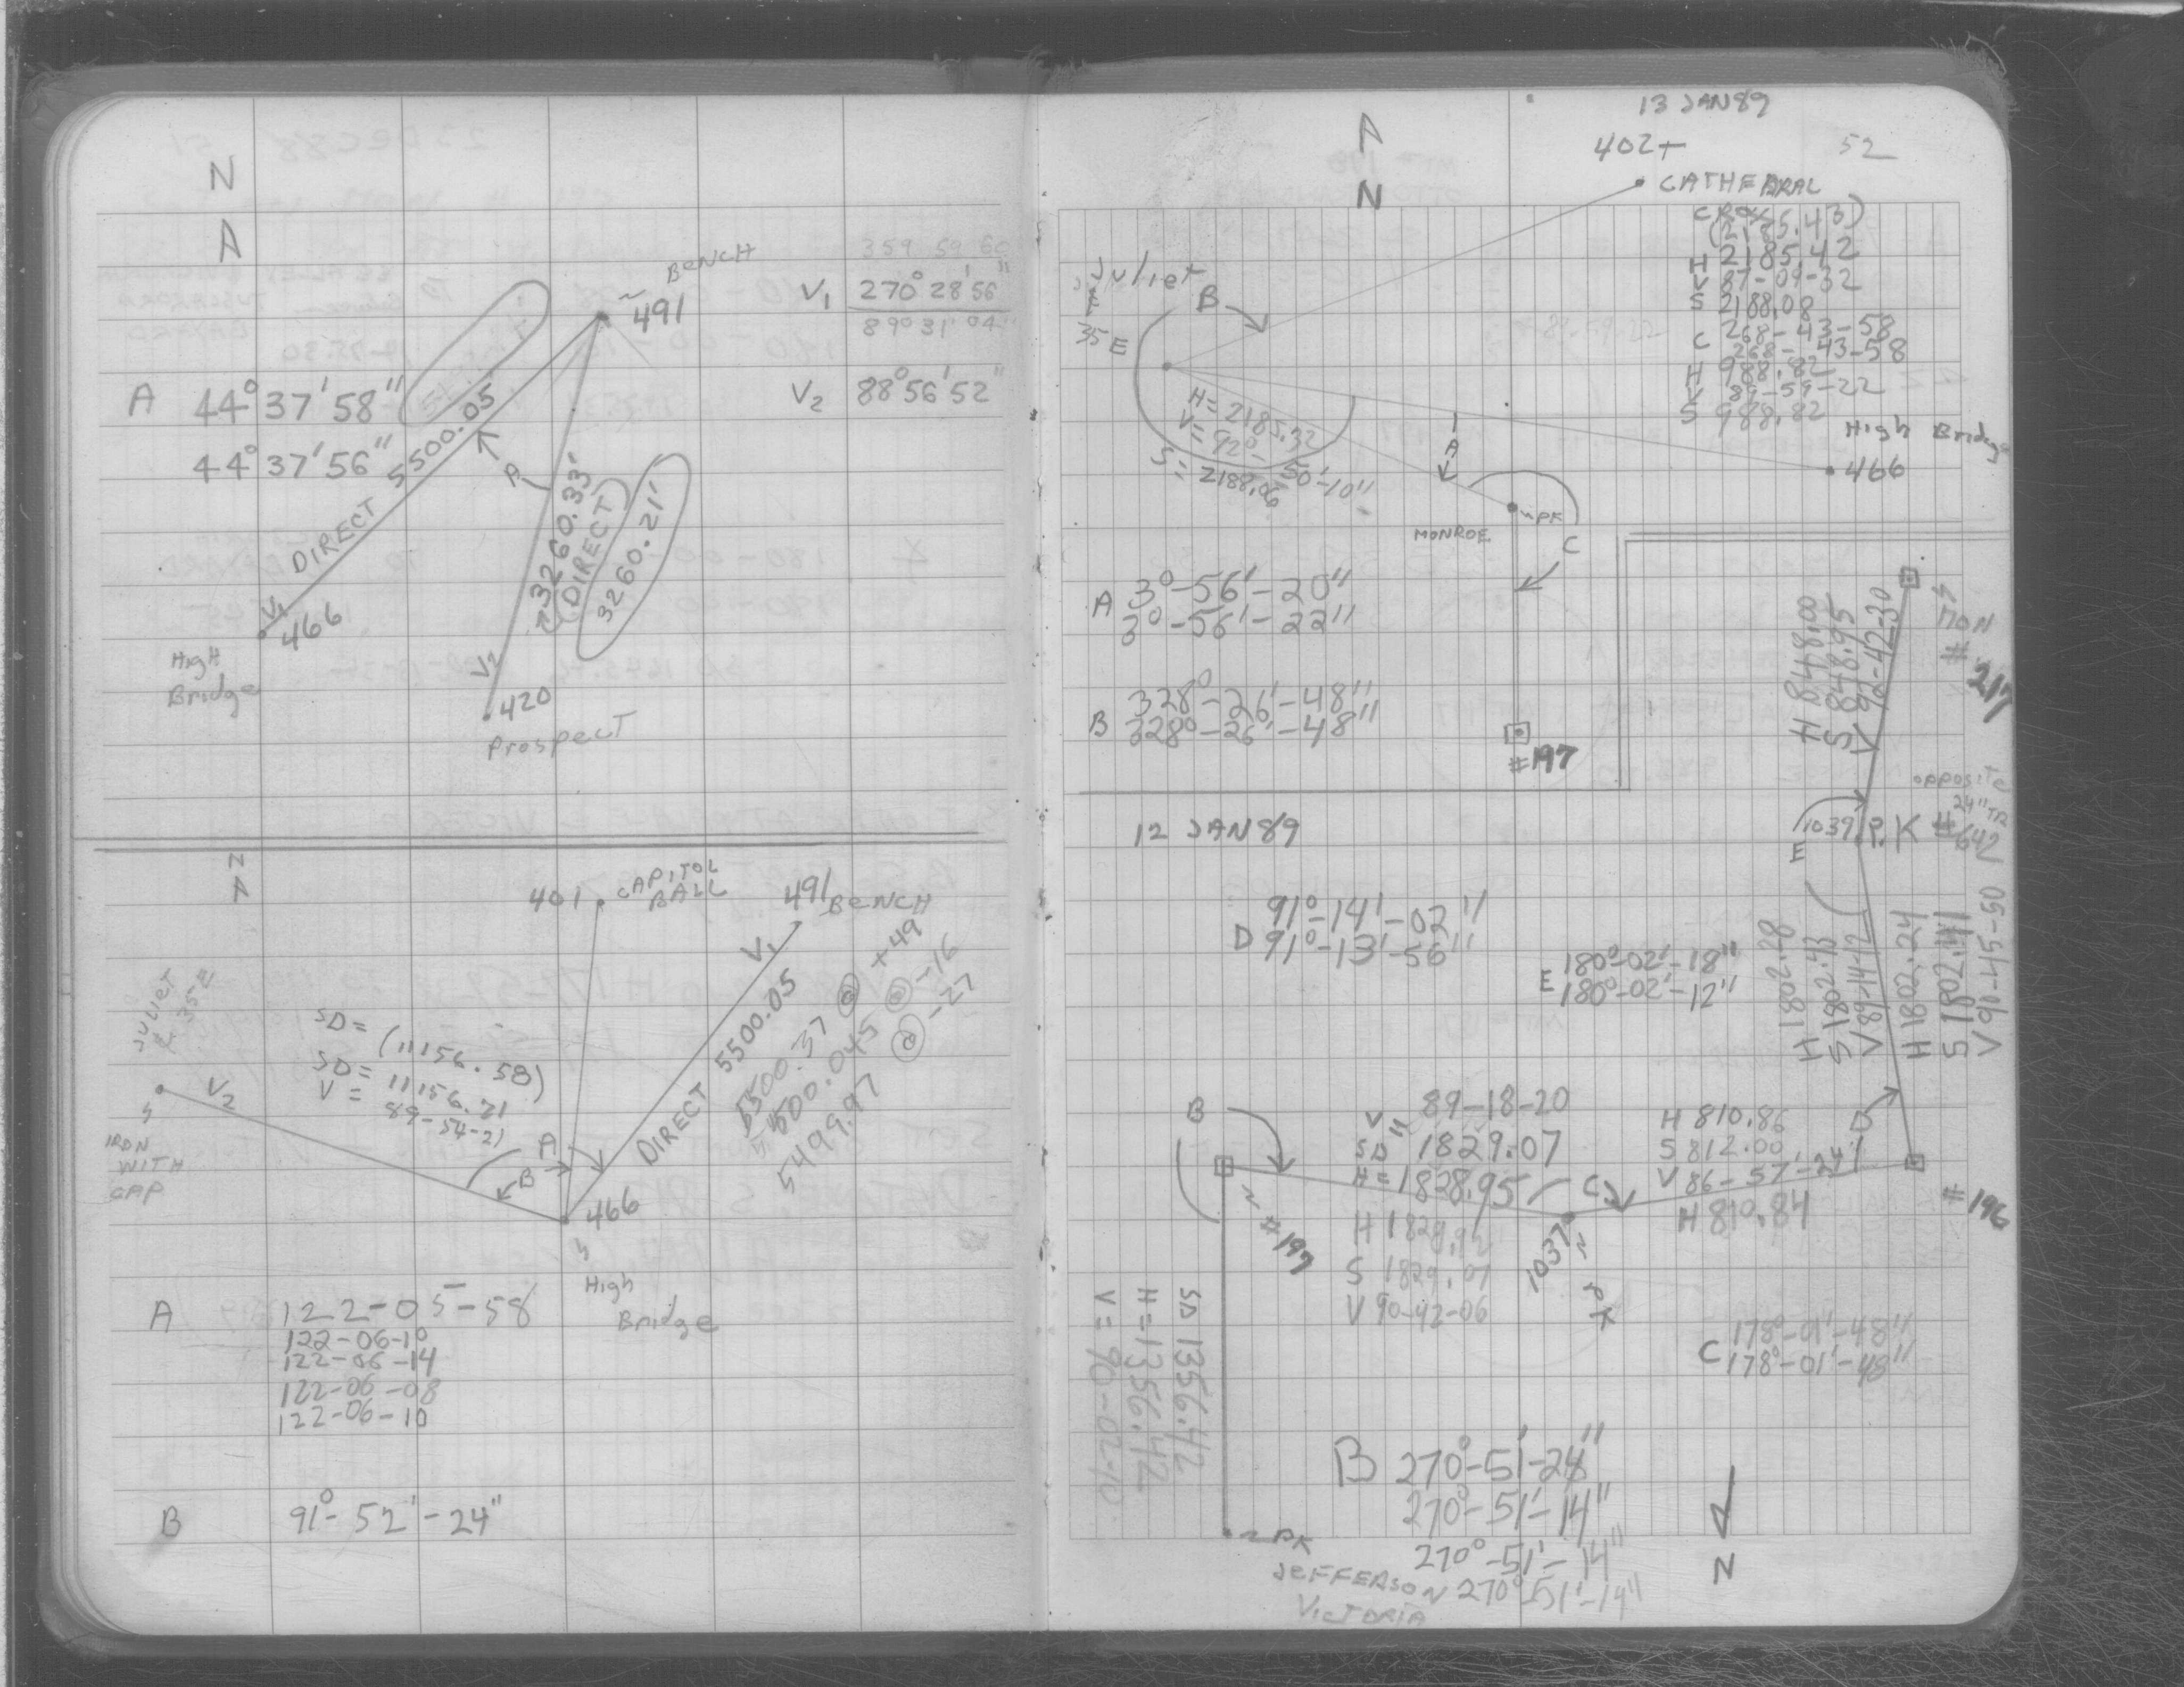 N
A
BENCH
491
359 59 60
V1 270° 28' 56"
89° 31' 04"
V2 88° 56' 52"
A 44° 37' 58"
44° 37' 56"
DIRECT 5500.05
A
3260.33'
(DIRECT)
3260.21'
V1
466
High
Bridge
V2
420
Prospect
N
A
401 CAPITOL
BALL
491 BENCH
V1
DIRECT 5500.05
5500.37 @ +49
5500.045 @ -16
5499.97 @ -27
JULIET
& 35E
SD = (11156.58)
SD = 11156.21
V = 89-54-21
V2
IRON
WITH
CAP
A
B
466
High
Bridge
A 122-05-58
122-06-10
122-06-14
122-06-08
122-06-10
B 91°-52'-24"
13 JAN 89
52
A
N
402
CATHEDRAL
CROSS
(2185.43)
H 2185.42
V 87-09-32
S 2188.08
C 268-43-58
268-43-58
H 988.82
V 89-59-22
S 988.82
Juliet
&
35E
B
H = 2185.32
V = 92°-50'-10"
S = 2188.06
A
High Bridge
466
PK
MONROE
C
A 3°-56'-20"
3°-56'-22"
B 328°-26'-48"
328°-26'-48"
#197
MON
#217
H 848.00
S 848.95
V 92-42-30
opposite
24" TR
1039 P.K #642
E
12 JAN 89
D 91°-14'-02"
91°-13'-56"
E 180°-02'-18"
180°-02'-12"
H 1802.28
S 1802.43
V 89-14-12
H 1802.24
S 1802.41
V 90-45-50
B
V 89-18-20
SD 1829.07
H = 1828.95
H 1828.92
S 1829.07
V 90-42-06
H 810.86
S 812.00
V 86-57'-24"
H 810.84
D
C
#197
1037
PK
#196
SD 1356.42
H = 1356.42
V = 90-02-10
C 178°-01'-48"
178°-01'-48"
B 270°-51'-24"
270°-51'-14"
270°-51'-14"
270°-51'-14"
PK
JEFFERSON
VICTORIA
N